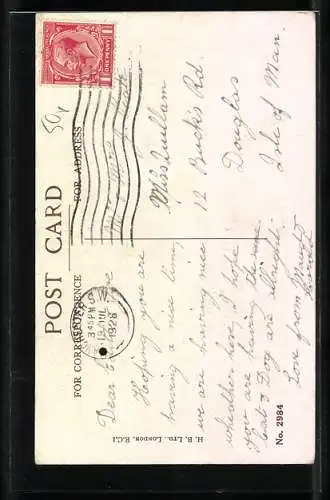 POST CARD
FOR CORRESPONDENCE
FOR ADDRESS
ONE PENNY
3 45 PM
19 JUL
1928
50
Dear
Hoping you are
having a nice time,
we are having nice
whether here, I hope
you are having the same.
Cat & Dog are allright.
Love from
Miss Quillam
12 Buck's Rd.
Douglas
Isle of Man.
H. B. Ltd., London, E.C.1
No. 2984